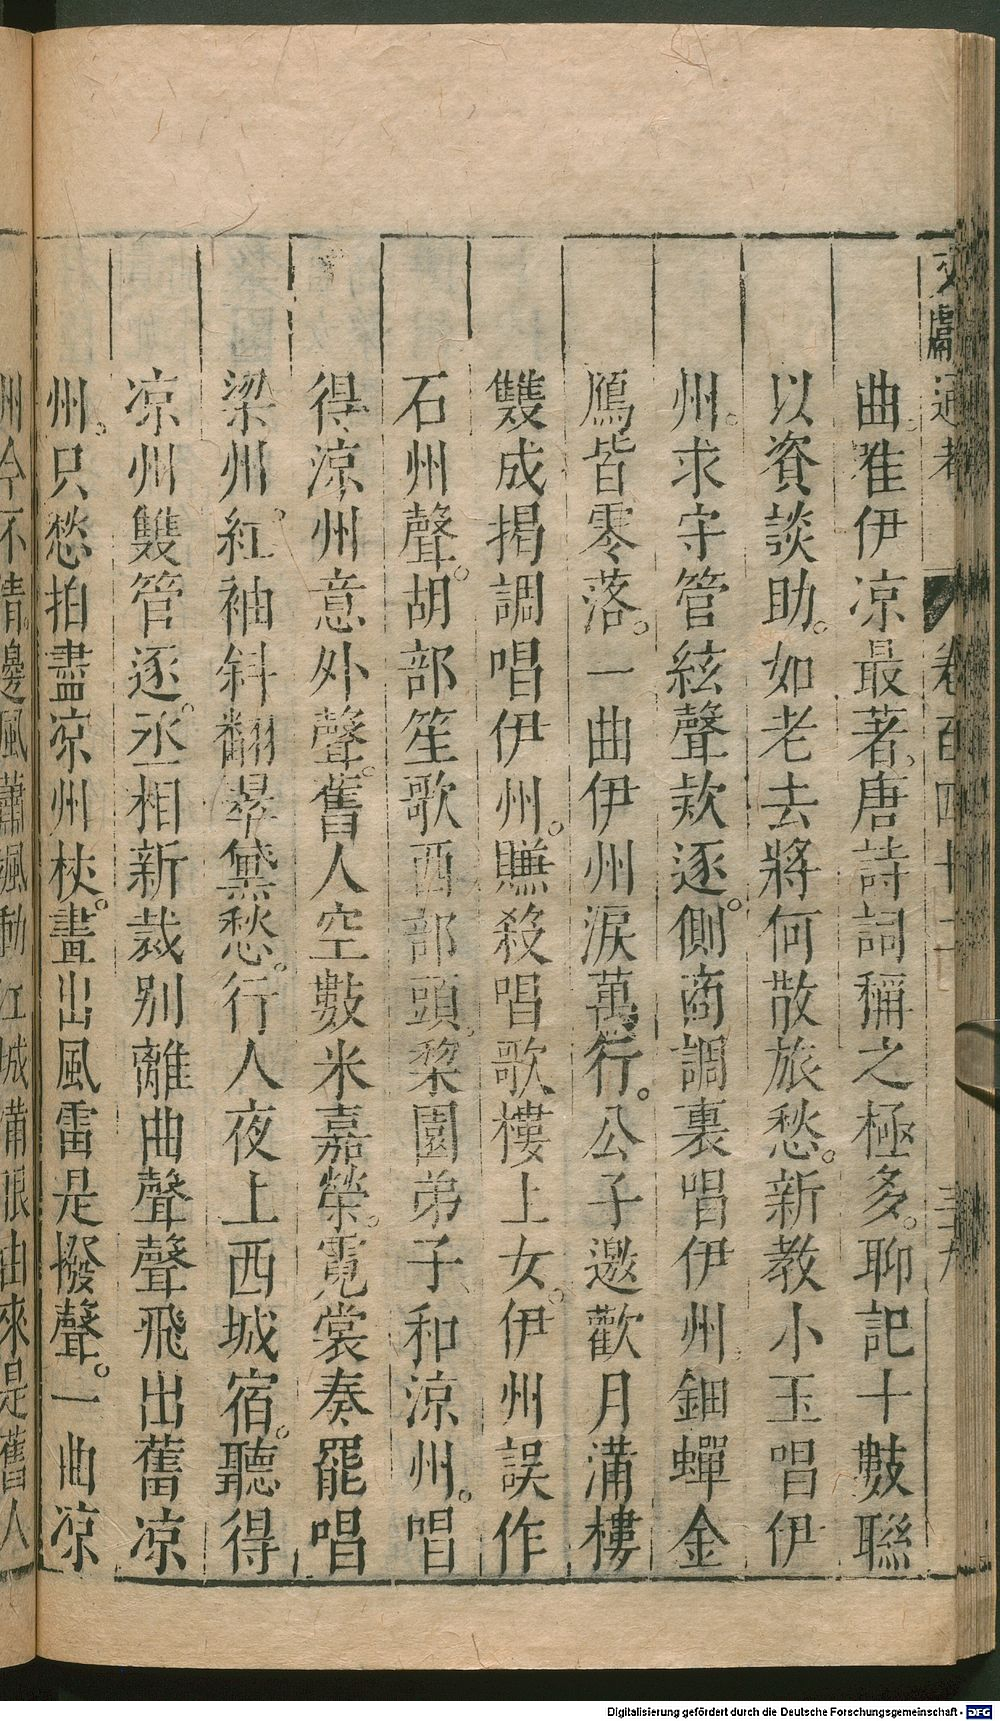 文獻通考 卷百四十二
曲雅伊凉最著唐詩詞稱之極多聊記十數聯
以資談助如老去將何散旅愁新教小玉唱伊
州求守管絃聲欵逐側商調裏唱伊州鈿蟬金
鴈皆零落一曲伊州淚萬行公子邀歡月滿樓
雙成揭調唱伊州賺殺唱歌樓上女伊州誤作
石州聲胡部笙歌西部頭棃園弟子和凉州唱
得凉州意外聲舊人空數米嘉榮霓裳奏罷唱
梁州紅袖斜翻翠黛愁行人夜上西城宿聽得
凉州雙管逐丞相新裁别離曲聲聲飛出舊凉
州只愁拍盡凉州杖畫出風雷是撥聲一曲凉
州今不清邊風蕭颯動江城滿眼由來是舊人
Digitalisierung gefördert durch die Deutsche Forschungsgemeinschaft - DFG